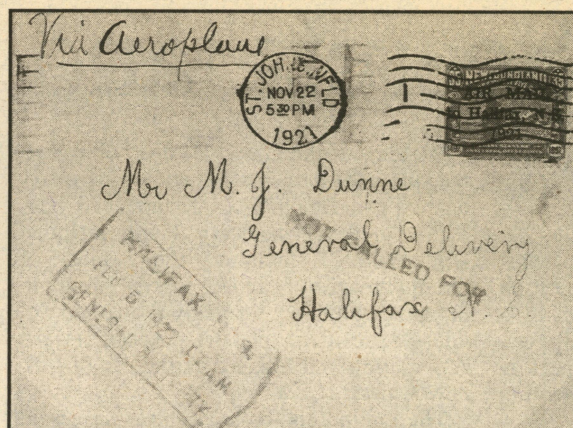 Via Aeroplane
ST. JOHN'S NFLD
NOV 22
5 30 PM
1921
AIR MAIL
Halifax, N.S.
1921
Mr M. J. Dunne
General Delivery
Halifax N.S.
NOT CALLED FOR
HALIFAX
FEB 5 1922
GENERAL DELIVERY